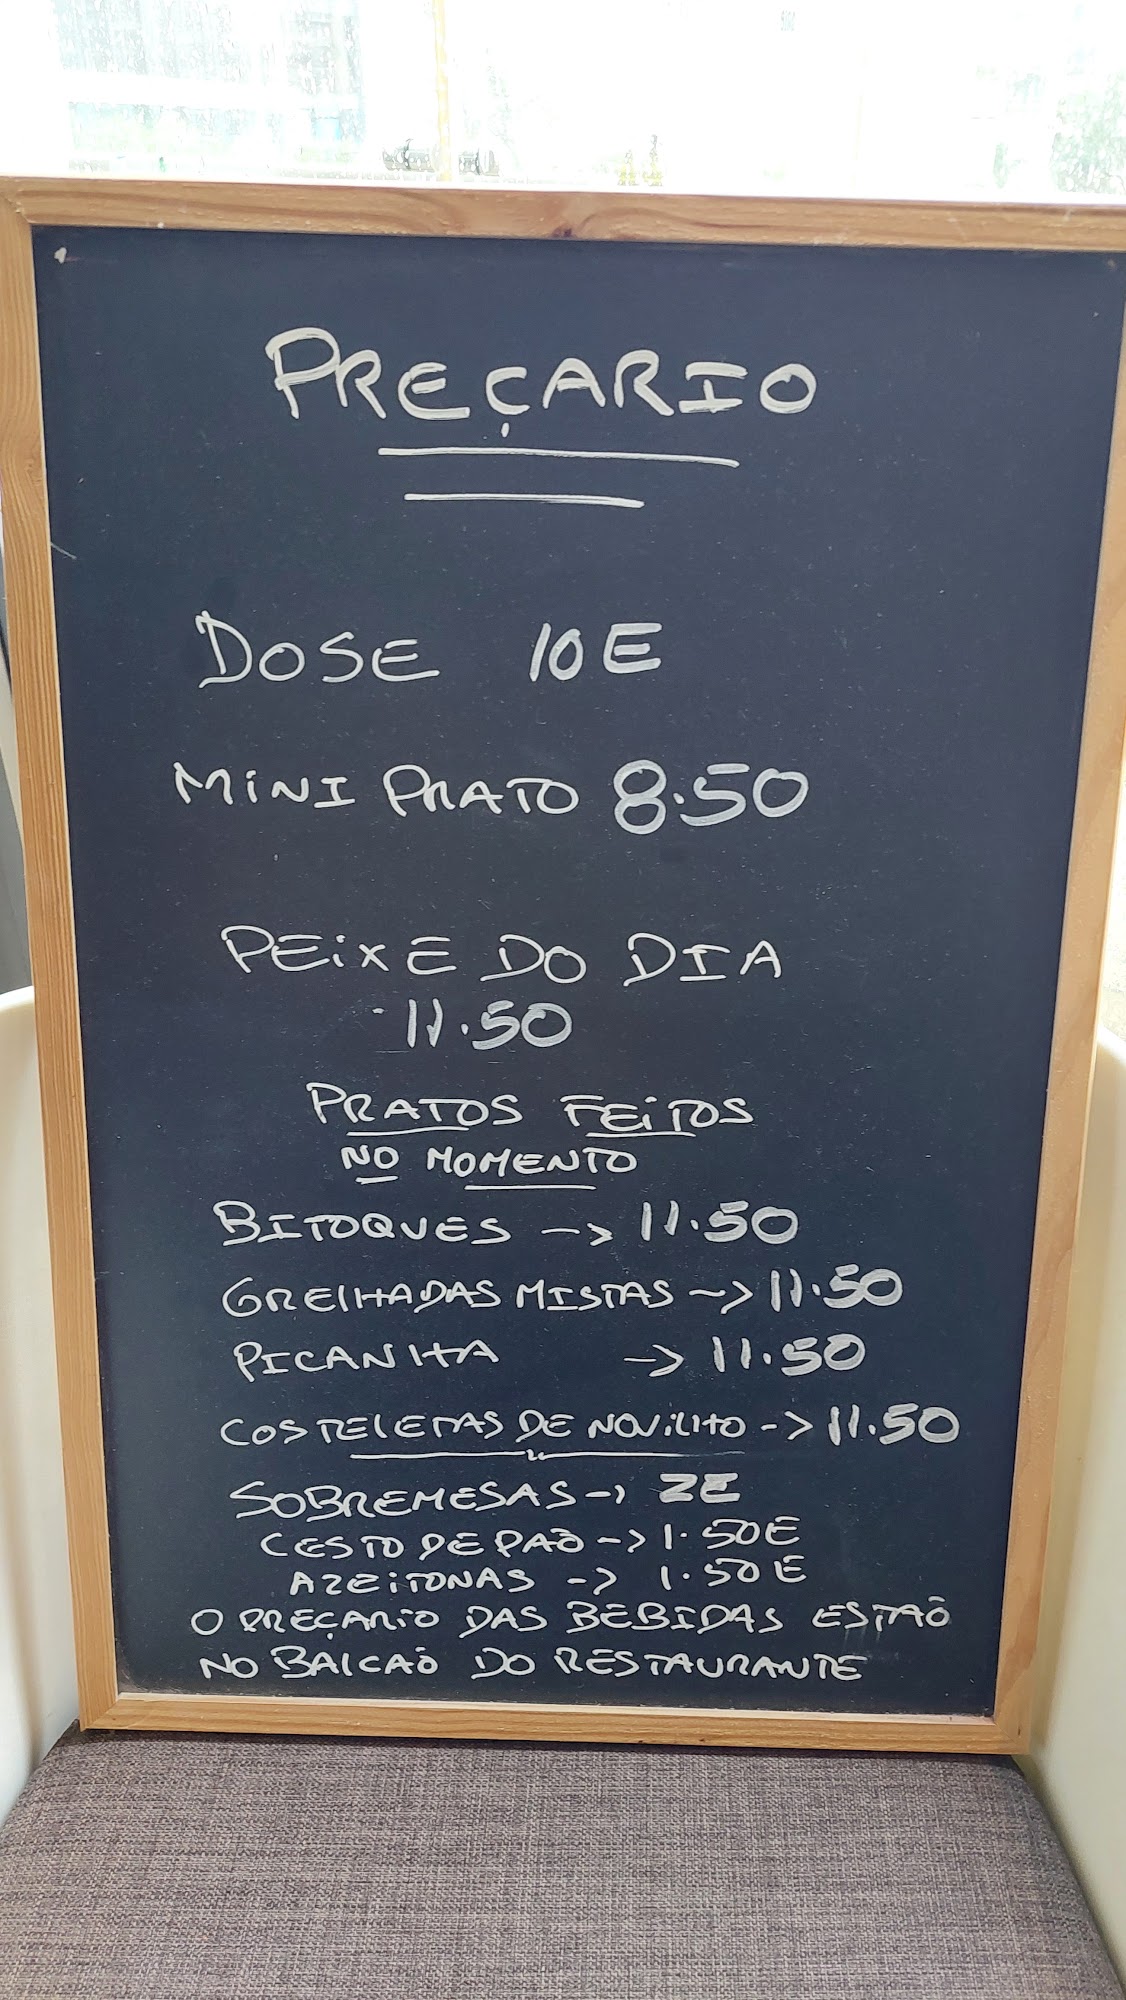 PREÇARIO
DOSE 10E
MiNI PRATO 8.50
PEiXE DO DIA
11.50
PRATOS FEiTOS
NO MOMENTO
BITOQUES -> 11.50
GRElHADAS MISTAS -> 11.50
PICANHA -> 11.50
COSTELETAS DE NOVilHO -> 11.50
SOBREMESAS -> 2E
CESTO DE PAÕ -> 1.50E
AZEiTONAS -> 1.50E
O PREÇARIO DAS BEBIDAS ESTAÕ
NO BALCAÕ DO RESTAURANTE